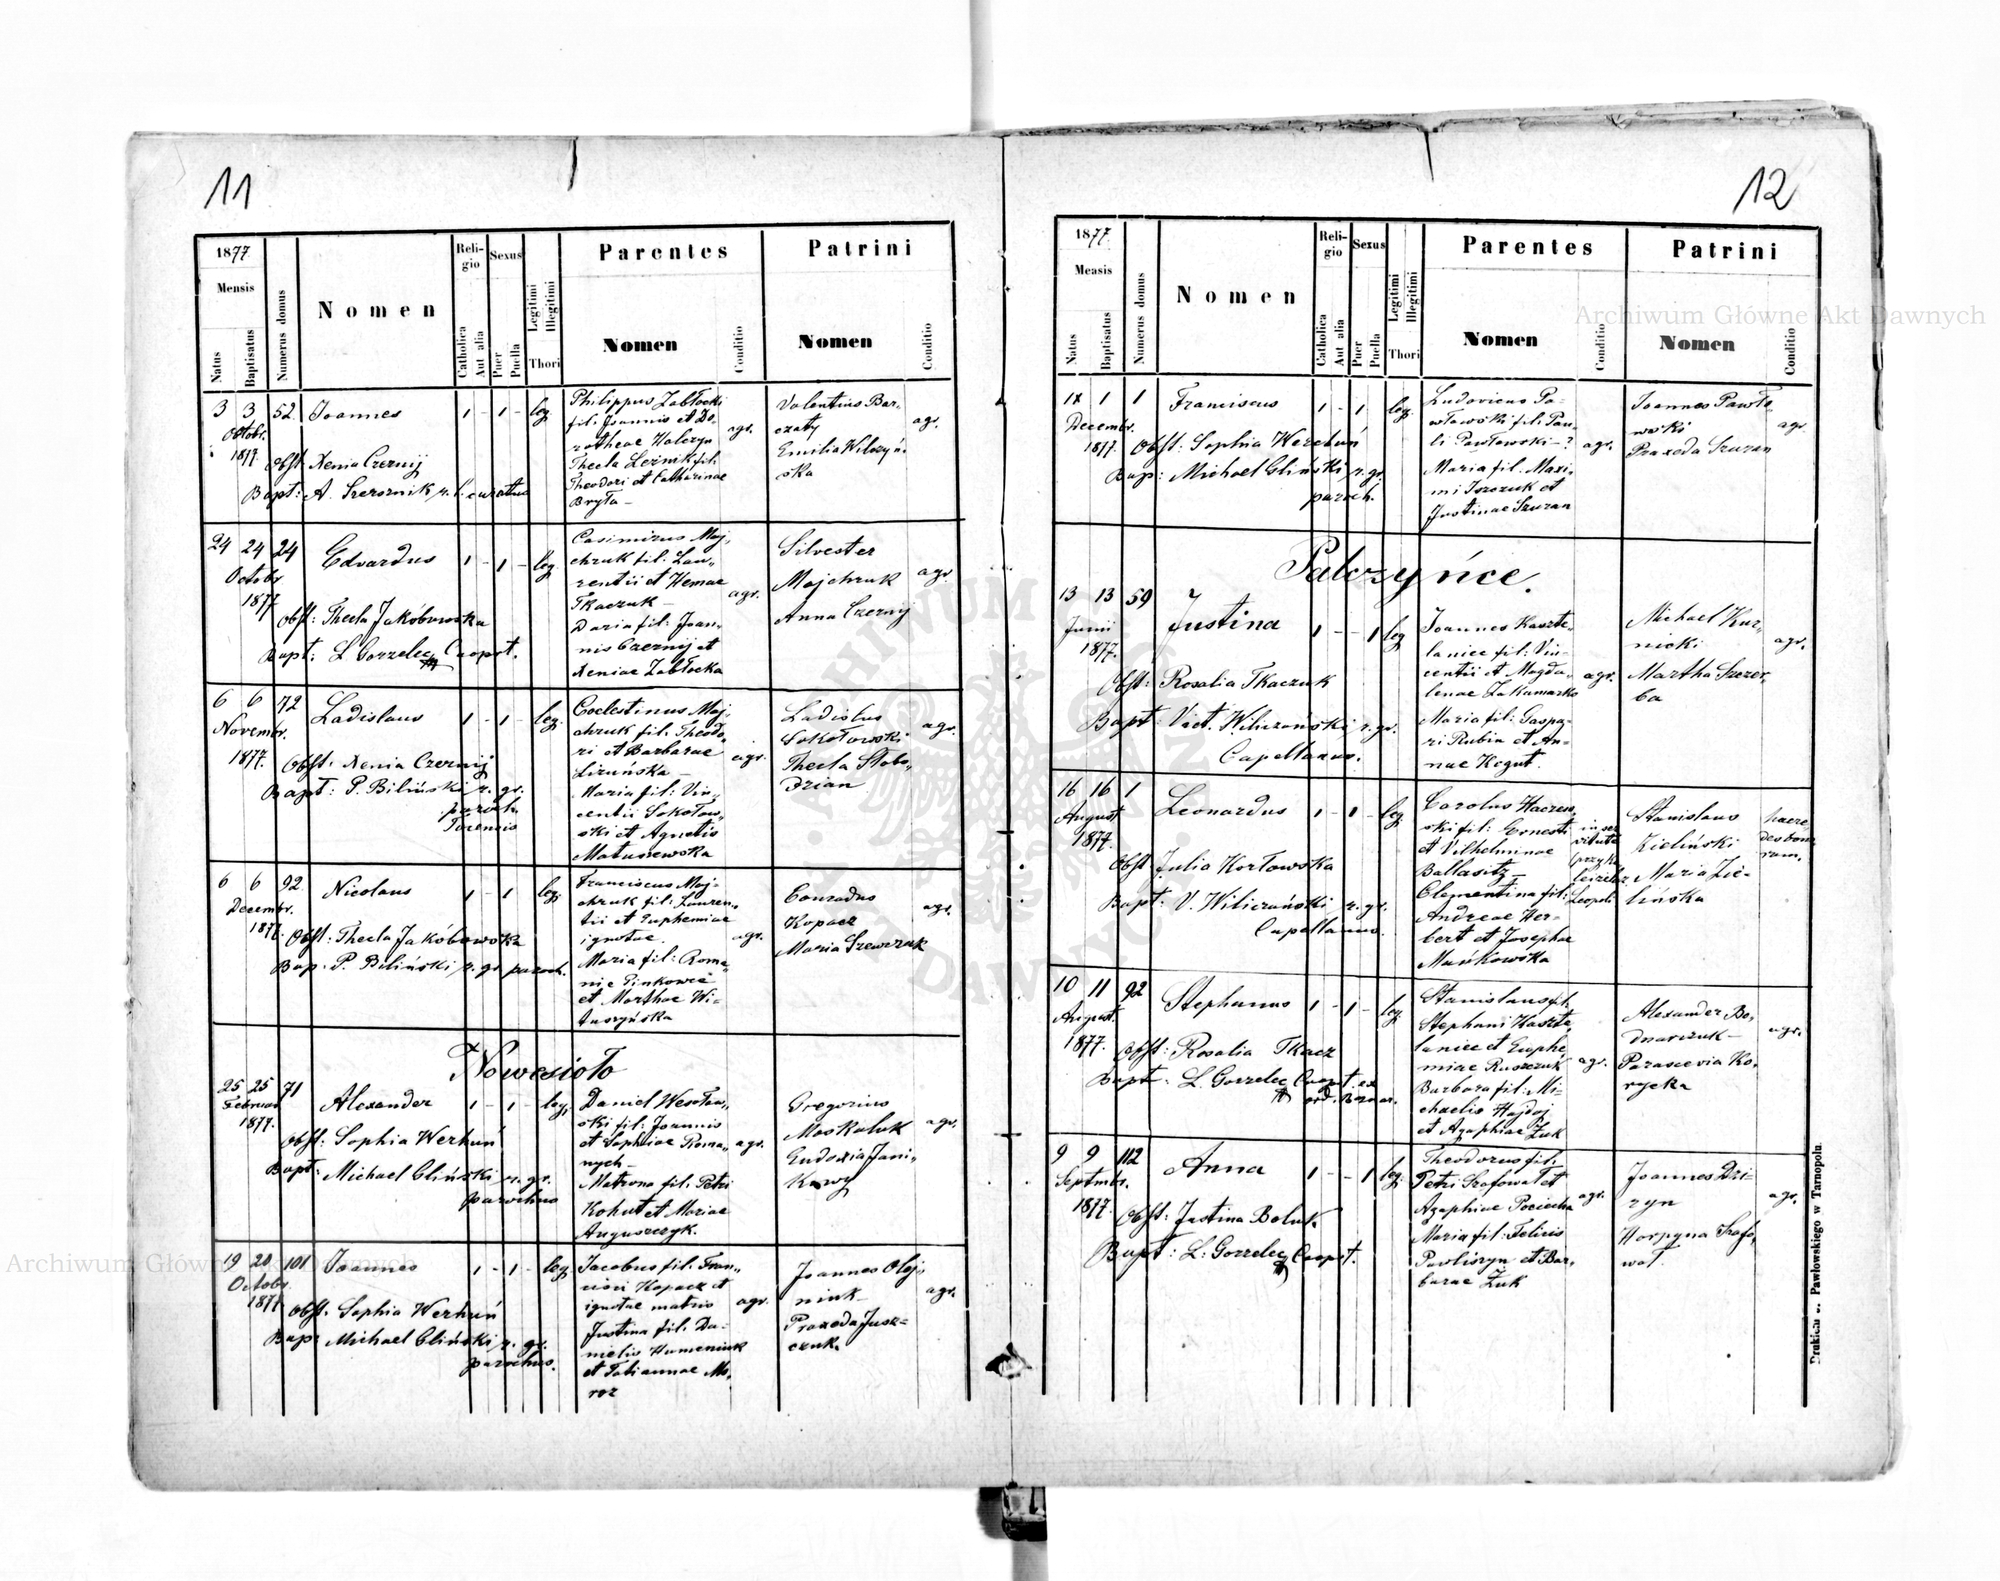 11
1877.
Mensis
Natus
Baptisatus
Numerus domus
Nomen
Religio
Catholica
Aut alia
Sexus
Puer
Puella
Legitimi
Illegitimi
Thori
Parentes
Nomen
Conditio
Patrini
Nomen
Conditio
3 3 52 Joannes 1 - 1 - leg.
Octobr.
1877.
Obst. Xenia Czernij
Bapt: A. Szersznik, r. l. curatus
Philippus Zabłocki
fil. Joannis et Do-
rotheae Halczyn
Thecla Leżnik fil.
Theodori et Catharinae
Bryła -
agr.
Valentius Bar-
czaty
Emilia Wilczyń-
ska
agr.
24 24 24 Edvardus 1 - 1 - leg.
Octobr.
1877
Obst: Thecla Jakóbowska
Bapt: L. Gorzelec Coopert.
Casimirus Maj-
chruk fil. Lau-
rentii et Xeniae
Tkaczuk -
Daria fil: Joan-
nis Czernij et
Xeniae Zabłocka
agr.
Silvester
Majchruk
Anna Czernij
agr.
6 6 72 Ladislaus 1 - 1 - leg.
Novembr.
1877.
Obst. Xenia Czernij
Bapt: P. Biliński r. gr.
paroch.
Torensis
Coelestinus Maj-
chruk fil. Theodo-
ri et Barbarae
Lizuńska -
Maria fil: Vin-
centii Sokołow-
ski et Agnetis
Matusewska
agr.
Ladislus
Sokołowski
Thecla Słobo-
dzian
agr.
6 6 92 Nicolaus 1 - 1 - leg.
Decembr.
1877.
Obst: Thecla Jakóbowska
Bap. P. Biliński r. gr. paroch.
Franciscus Maj-
chruk fil. Lauren-
tii et Euphemiae
ignotae.
Maria fil: Roma-
nie Pinkowcz
et Marthae Wi-
tuszyńska
agr.
Conradus
Kopacz
Maria Szewczuk
agr.
Nowesioło
25 25 71 Alexander 1 - 1 - leg.
Februar
1877.
Obst: Sophia Werhuń
Bapt: Michael Gliński r. gr.
parochus
Daniel Wesołow-
ski fil. Joannis
et Sophiae Roma-
nych -
Matrona fil. Petri
Kohut et Mariae
Anguszczyk.
agr.
Gregorius
Moskaluk
Eudoxia Jani-
kowy
agr.
19 20 101 Joannes 1 - 1 - leg.
Octobr.
1877
Obst. Sophia Werhuń
Bap: Michael Gliński r. gr.
parochus.
Jacobus fil. Fran-
cisci Kopacz et
ignotae matris
Justina fil. Da-
nielis Humeniuk
et Tatiannae Mo-
roz
agr.
Joannes Olej-
niuk -
Praxeda Jusz-
czuk.
agr.
12
1877.
Mensis
Natus
Baptisatus
Numerus domus
Nomen
Religio
Catholica
Aut alia
Sexus
Puer
Puella
Legitimi
Illegitimi
Thori
Parentes
Nomen
Conditio
Patrini
Nomen
Conditio
1 1 Franciscus 1 - 1 leg.
Decembr.
1877.
Obst: Sophia Werchuń
Bap: Michael Gliński r. gr.
paroch.
Ludovicus Pa-
włowski fil. Pau-
li Pawłowski - ?
Maria fil. Maxi-
mi Iszczuk et
Justinae Szuran
agr.
Joannes Pawło-
wski
Praxeda Szuran
agr.
Palczyńce.
13 13 59 Justina 1 - - 1 leg
Junii
1877.
Obst: Rosalia Tkaczuk
Bapt: Vict. Wiliczański r. gr.
Capellanus.
Joannes Kaszte-
laniec fil: Vin-
centii et Magda-
lenae Zakumarko
Maria fil: Gaspa-
ri Rubin et An-
nae Kogut.
agr.
Michael Kur-
nicki
Martha Szczer-
ba
agr.
16 16 1 Leonardus 1 - 1 - leg.
August
1877.
Obst Julia Korłowska
Bapt: V. Wiliczański r. gr.
Capellanus.
Carolus Haczew-
ski fil: Ernesti
et Vilhelminae
Ballasitz -
Clementina fil:
Andreae Her-
bert et Josephae
Mańkowska
Stanislaus
Zieliński
Maria Zie-
lińska
haere
des bono
rum.
10 11 92 Stephanus 1 - 1 - leg.
August.
1877.
Obst: Rosalia Tkacz
Bapt: L. Gorzelec Coopt. ex
ord.
Stanislaus fil:
Stephani Kaszte-
laniec et Euphe-
miae Ruszczuk
Barbara fil: Mi-
chaelis Hajdaj
et Agaphiae Żuk
agr.
Alexander Bo-
dnarczuk -
Parascevia Ko-
rycka
agr.
9 9 112 Anna 1 - - 1 leg.
Septmbr.
1877.
Obst: Justina Boluk
Bapt: L: Gorzelec Coopt.
Theodorus fil.
Petri Szafowat et
Agaphiae Pociecha
Maria fil: Felicis
Pavliszyn et Bar-
barae Żuk
agr.
Joannes Dzi-
zyn
Horpyna Szafo-
wat.
agr.
Drukiem J. Pawłowskiego w Tarnopolu.
Archiwum Główne Akt Dawnych
Archiwum Główne Akt Dawnych
ARCHIWUM GŁÓWNE AKT DAWNYCH